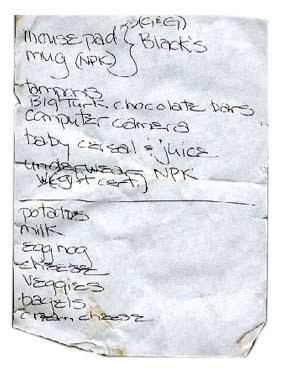 (G&G)
mousepad } Black's
mug (NPK)
tampons
Big Turk chocolate bars
computer camera
baby cereal & juice
underwear } NPK
potatoes
milk
egg nog
cheese
veggies
bagels
cream cheese